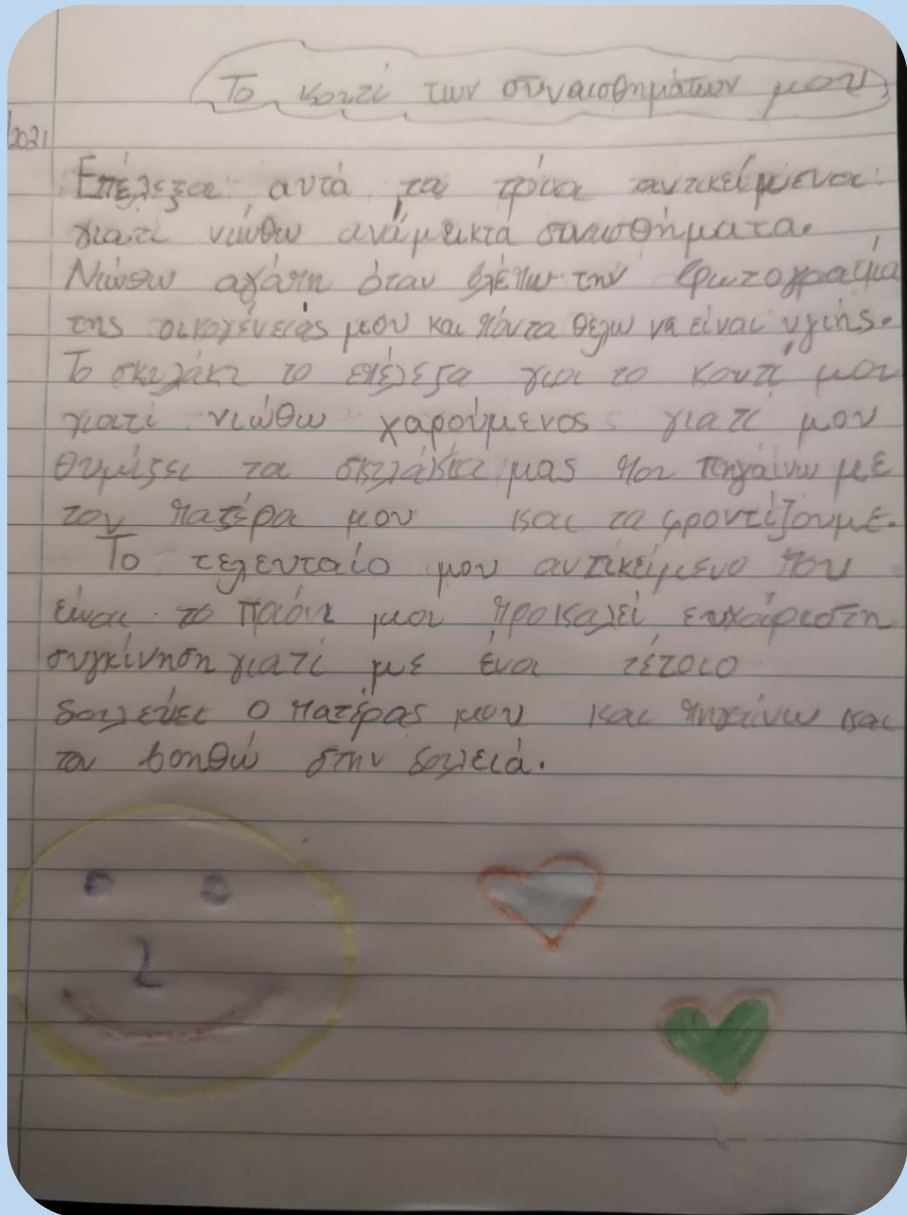 Το κουτί των συναισθημάτων μου
2021
Επέλεξα αυτά τα τρία αντικείμενα
γιατί νιώθω ανάμεικτα συναισθήματα.
Νιώθω αγάπη όταν βλέπω την φωτογραφία
της οικογένειάς μου και πάντα θέλω να είναι υγιής.
Το σκυλάκι το επέλεξα για το κουτί μου
γιατί νιώθω χαρούμενος γιατί μου
θυμίζει τα σκυλάκια μας που πηγαίνω με
τον πατέρα μου και τα φροντίζουμε.
Το τελευταίο μου αντικείμενο που
είναι το πριόνι μου προκαλεί ευχάριστη
συγκίνηση γιατί με ένα τέτοιο
δουλεύει ο πατέρας μου και πηγαίνω και
τον βοηθώ στην δουλειά.